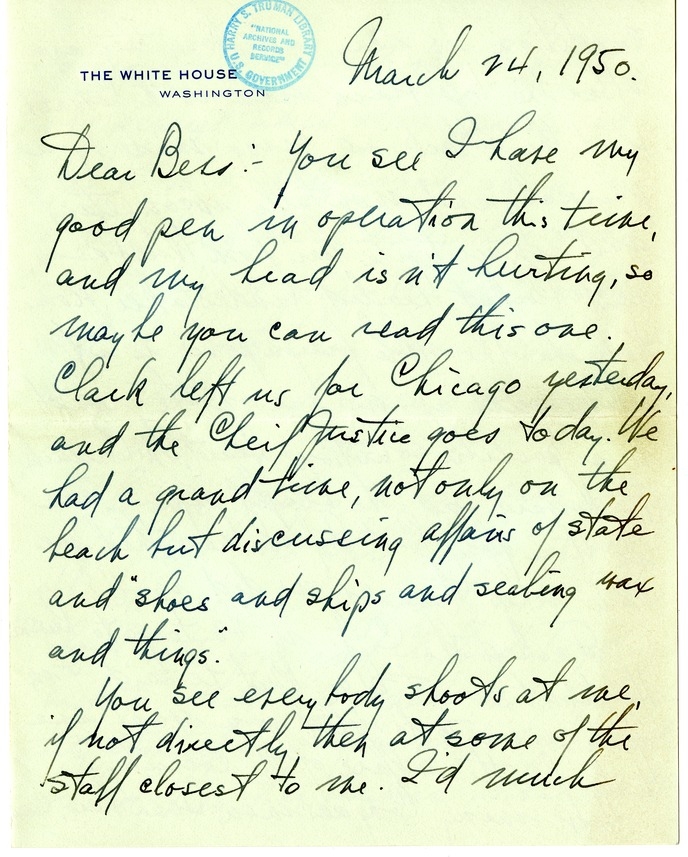 HARRY S. TRUMAN LIBRARY
"NATIONAL
ARCHIVES AND
RECORDS
SERVICE"
U.S. GOVERNMENT
THE WHITE HOUSE
WASHINGTON
March 24, 1950.
Dear Bess:- You see I have my
good pen in operation this time,
and my head isn't hurting, so
maybe you can read this one.
Clark left us for Chicago yesterday,
and the Cheif Justice goes today. We
had a grand time, not only on the
beach but discussing affairs of state
and "shoes and ships and sealing wax
and things."
You see everybody shoots at me,
if not directly, then at some of the
staff closest to me. I'd much